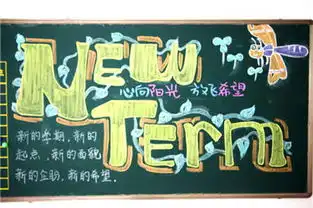 New
心向阳光 放飞希望
Term
新的学期,新的
起点,新的面貌
新的企盼,新的希望.